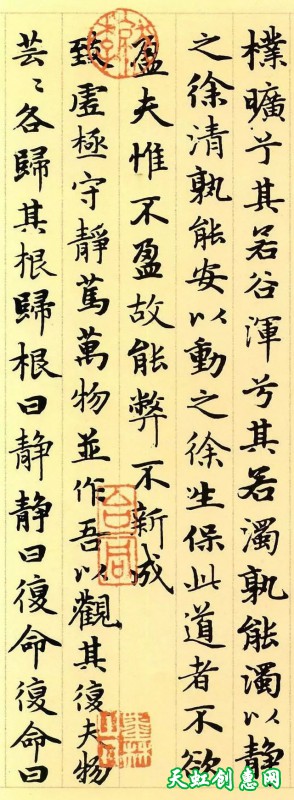 樸曠兮其若谷渾兮其若濁孰能濁以靜
之徐清孰能安以動之徐生保此道者不欲
盈夫惟不盈故能弊不新成
致虛極守靜篤萬物並作吾以觀其復夫物
芸〻各歸其根歸根曰靜靜曰復命復命曰
天虹创意网